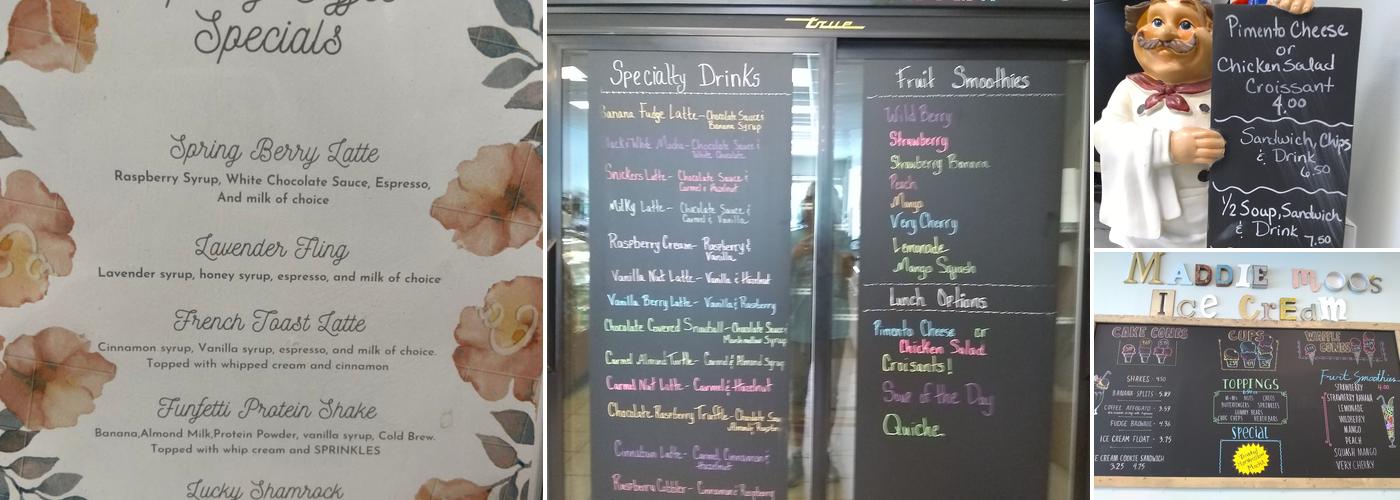 Specials
Spring Berry Latte
Raspberry Syrup, White Chocolate Sauce, Espresso,
And milk of choice
Lavender Fling
Lavender syrup, honey syrup, espresso, and milk of choice
French Toast Latte
Cinnamon syrup, Vanilla syrup, espresso, and milk of choice.
Topped with whipped cream and cinnamon
Funfetti Protein Shake
Banana,Almond Milk,Protein Powder, vanilla syrup, Cold Brew.
Topped with whip cream and SPRINKLES
Lucky Shamrock
true
Specialty Drinks
Banana Fudge Latte - Chocolate Sauce &
Banana Syrup
White Mocha - Chocolate Sauce &
White Chocolate
Snickers Latte - Chocolate Sauce &
Carmel & Hazelnut
Milky Latte - Chocolate Sauce &
Carmel & Vanilla
Raspberry Cream - Raspberry &
Vanilla
Vanilla Nut Latte - Vanilla & Hazelnut
Vanilla Berry Latte - Vanilla & Raspberry
Chocolate Covered Snowball - Chocolate Sauce
Marshmallow Syrup
Carmel Almond Turtle - Carmel & Almond Syrup
Carmel Nut Latte - Carmel & Hazelnut
Chocolate Raspberry Truffle - Chocolate
Cinnabun Latte - Carmel, Cinnamon &
Hazelnut
Raspberry Cobbler - Cinnamon & Raspberry
Fruit Smoothies
Wild Berry
Strawberry
Strawberry Banana
Peach
Mango
Very Cherry
Lemonade
Mango Squash
Lunch Options
Pimento Cheese or
Chicken Salad
Croisants!
Soup of the Day
Quiche
Pimento Cheese
or
Chicken Salad
Croissant
4.00
Sandwich, Chips
& Drink
6.50
1/2 Soup, Sandwich
& Drink
7.50
MADDIE MOOS
ICE CREAM
CAKE CONES
CUPS
WAFFLE
CONES
SHAKES - 4.50
BANANA SPLITS - 5.89
COFFEE AFFOGATO - 3.59
FUDGE BROWNIE - 4.36
ICE CREAM FLOAT - 3.75
ICE CREAM COOKIE SANDWICH
3.25 4.75
TOPPINGS
M+Ms NUTS OREOS
BUTTERFINGERS SPRINKLES
GUMMY BEARS
CHOC CHIPS
SPECIAL
Fruit Smoothies
STRAWBERRY 4.00
STRAWBERRY BANANA
LEMONADE
WILDBERRY
MANGO
PEACH
SQUASH MANGO
VERY CHERRY